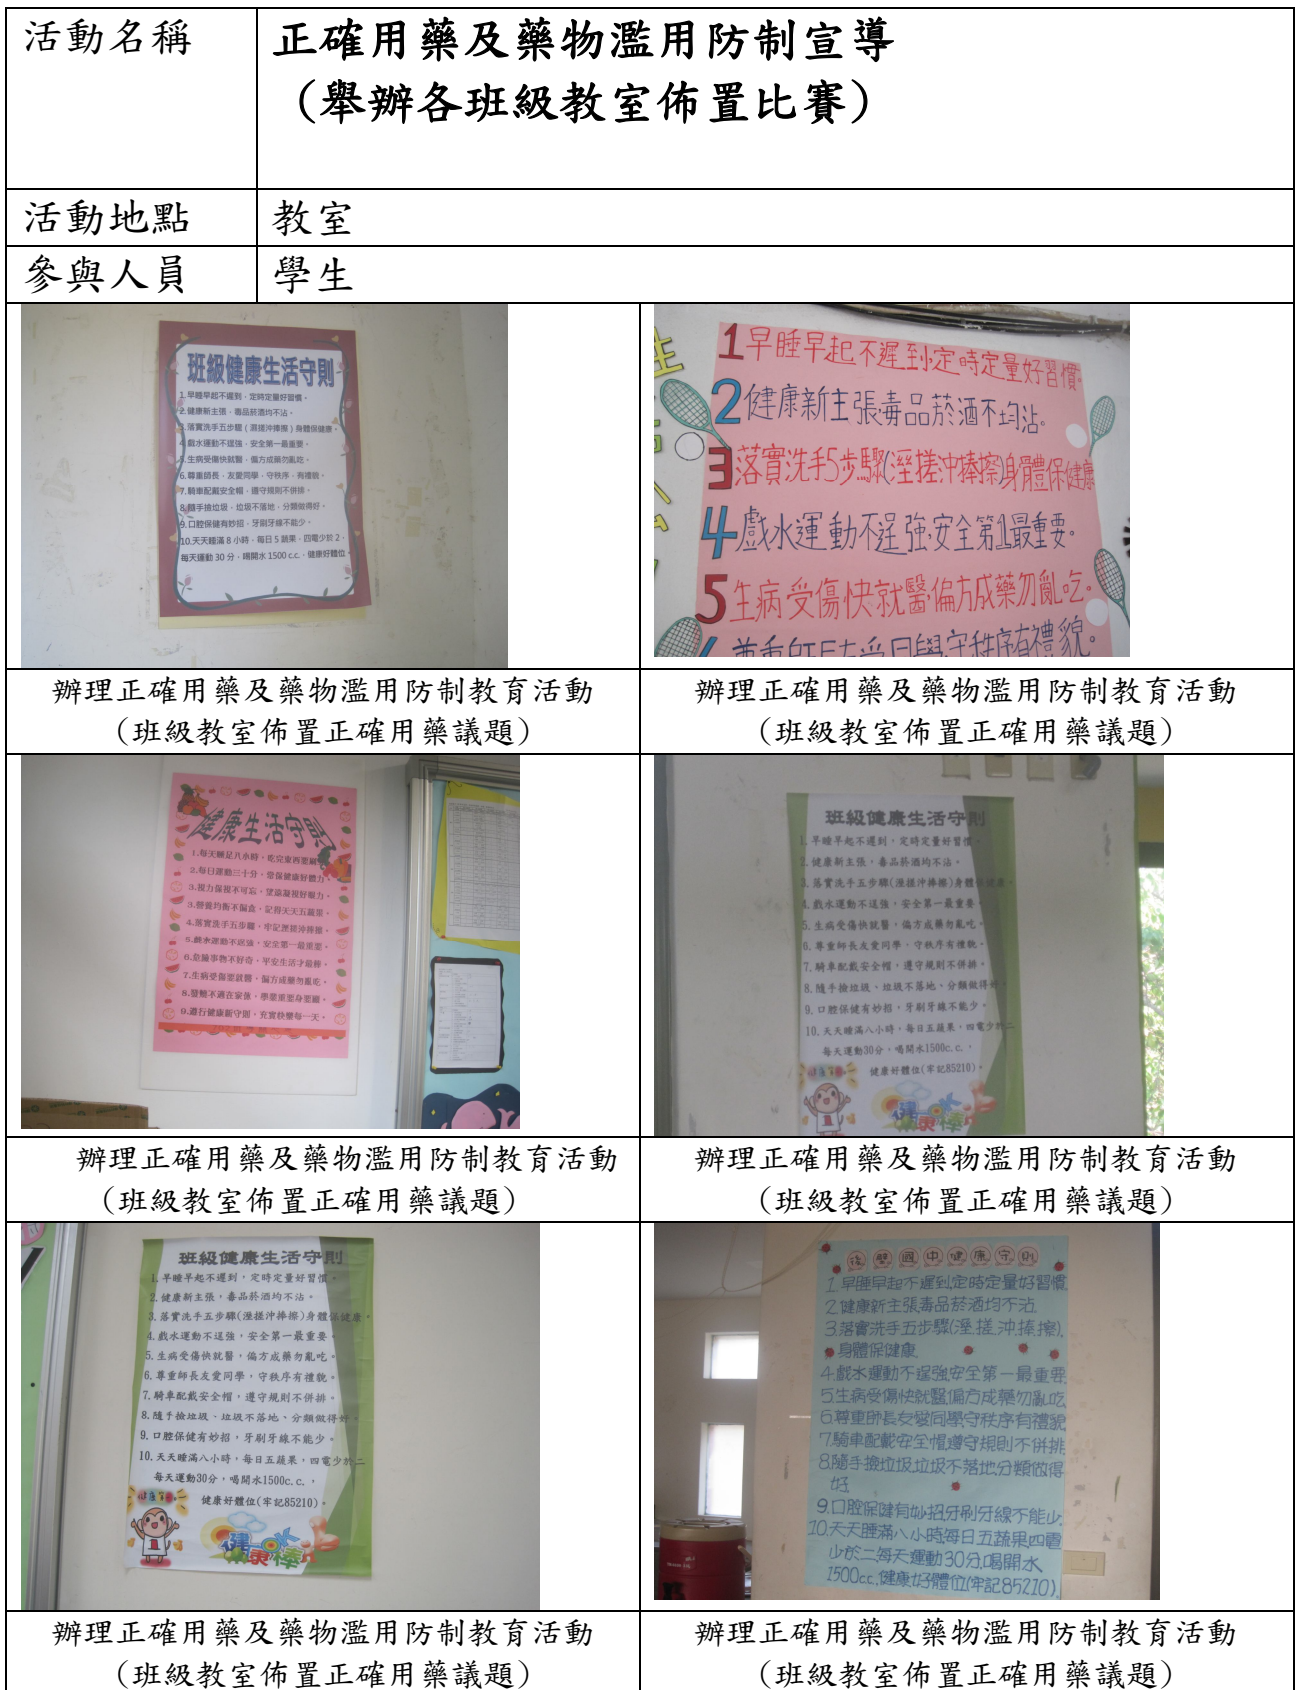 活動名稱
正確用藥及藥物濫用防制宣導
（舉辦各班級教室佈置比賽）
活動地點
教室
參與人員
學生
班級健康生活守則
1.早睡早起不遲到，定時定量好習慣。
2.健康新主張，毒品菸酒均不沾。
3.落實洗手五步驟（濕搓沖捧擦）身體保健康。
4.戲水運動不逞強，安全第一最重要。
5.生病受傷快就醫，偏方成藥勿亂吃。
6.尊重師長，友愛同學，守秩序，有禮貌。
7.騎車配戴安全帽，遵守規則不併排。
8.隨手撿垃圾，垃圾不落地，分類做得好。
9.口腔保健有妙招，牙刷牙線不能少。
10.天天睡滿 8 小時，每日 5 蔬果，四電少於 2，
每天運動 30 分，喝開水 1500 c.c.，健康好體位。
1早睡早起不遲到,定時定量好習慣。
2健康新主張毒品菸酒不均沾。
3落實洗手5步驟(溼搓沖捧擦)身體保健康
4戲水運動不逞強,安全第1最重要。
5生病受傷快就醫,偏方成藥勿亂吃。
辦理正確用藥及藥物濫用防制教育活動
（班級教室佈置正確用藥議題）
辦理正確用藥及藥物濫用防制教育活動
（班級教室佈置正確用藥議題）
健康生活守則
1.每天睡足八小時，吃完東西要刷
2.每日運動三十分，常保健康好體力。
3.視力保視不可忘，望遠凝視好眼力。
3.營養均衡不偏食，記得天天五蔬果。
4.落實洗手五步驟，牢記溼搓沖捧擦。
5.戲水運動不逞強，安全第一最重要。
6.危險事物不好奇，平安生活才最棒。
7.生病受傷要就醫，偏方成藥勿亂吃。
8.發燒不適在家休，學業重要身要顧。
9.遵行健康新守則，充實快樂每一天。
班級健康生活守則
1.早睡早起不遲到，定時定量好習慣。
2.健康新主張，毒品菸酒均不沾。
3.落實洗手五步驟(溼搓沖捧擦)身體保健康。
4.戲水運動不逞強，安全第一最重要。
5.生病受傷快就醫，偏方成藥勿亂吃。
6.尊重師長友愛同學，守秩序有禮貌。
7.騎車配戴安全帽，遵守規則不併排。
8.隨手撿垃圾、垃圾不落地、分類做得好。
9.口腔保健有妙招，牙刷牙線不能少。
10.天天睡滿八小時，每日五蔬果，四電少於二
每天運動30分，喝開水1500c.c.，
健康好體位(牢記85210)。
健康OK棒
辦理正確用藥及藥物濫用防制教育活動
（班級教室佈置正確用藥議題）
辦理正確用藥及藥物濫用防制教育活動
（班級教室佈置正確用藥議題）
班級健康生活守則
1.早睡早起不遲到，定時定量好習慣。
2.健康新主張，毒品菸酒均不沾。
3.落實洗手五步驟(溼搓沖捧擦)身體保健康。
4.戲水運動不逞強，安全第一最重要。
5.生病受傷快就醫，偏方成藥勿亂吃。
6.尊重師長友愛同學，守秩序有禮貌。
7.騎車配戴安全帽，遵守規則不併排。
8.隨手撿垃圾、垃圾不落地、分類做得好。
9.口腔保健有妙招，牙刷牙線不能少。
10.天天睡滿八小時，每日五蔬果，四電少於二
每天運動30分，喝開水1500c.c.，
健康好體位(牢記85210)。
健康OK棒
後壁國中健康守則
1.早睡早起不遲到定時定量好習慣
2.健康新主張毒品菸酒均不沾
3.落實洗手五步驟(溼.搓.沖.捧.擦).
身體保健康
4.戲水運動不逞強安全第一最重要
5.生病受傷快就醫偏方成藥勿亂吃
6.尊重師長友愛同學守秩序有禮貌
7.騎車配戴安全帽遵守規則不併排
8.隨手撿垃圾垃圾不落地分類做得
好
9.口腔保健有妙招牙刷牙線不能少
10.天天睡滿八小時每日五蔬果四電
少於二每天運動30分喝開水
1500c.c.,健康好體位(牢記85210).
辦理正確用藥及藥物濫用防制教育活動
（班級教室佈置正確用藥議題）
辦理正確用藥及藥物濫用防制教育活動
（班級教室佈置正確用藥議題）